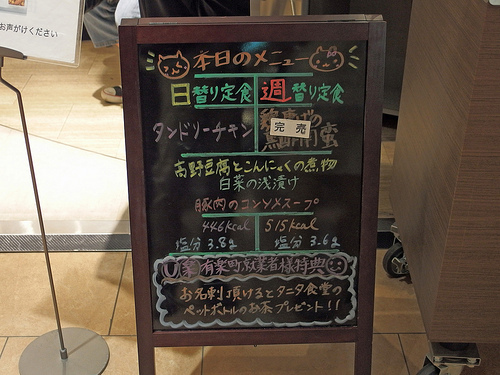 お声がけください
本日のメニュー
日替り定食 週替り定食
タンドリーチキン
完売
高野豆腐とこんにゃくの煮物
白菜の浅漬け
豚肉のコンソメスープ
446kcal 515kcal
塩分 3.8g 塩分 3.6g
有楽町就業者様特典
お名刺頂けるとタニタ食堂の
ペットボトルのお茶プレゼント!!